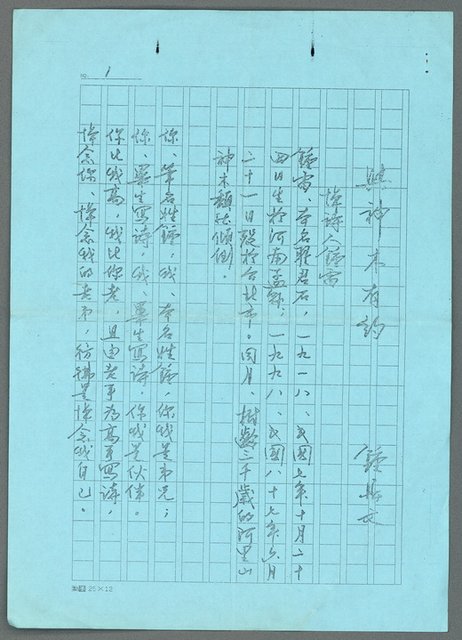 NO. 1
與神木有約
鍾鼎文
悼詩人鍾雷
鍾雷、本名翟君石,一九一八、民國七年十月二十
四日生於河南孟縣,一九九八、民國八十七年六月
二十一日歿於台北市。同月、樹齡三千歲的阿里山
神木頹然傾倒。
你、筆名姓鍾,我、本名姓鍾,你我是弟兄;
你、畢生寫詩,我、畢生寫詩,你我是伙伴。
你比我高,我比你老,且由老弟為高弟寫詩,
悼念你、悼念我的老弟,彷彿是悼念我自己。
25×12